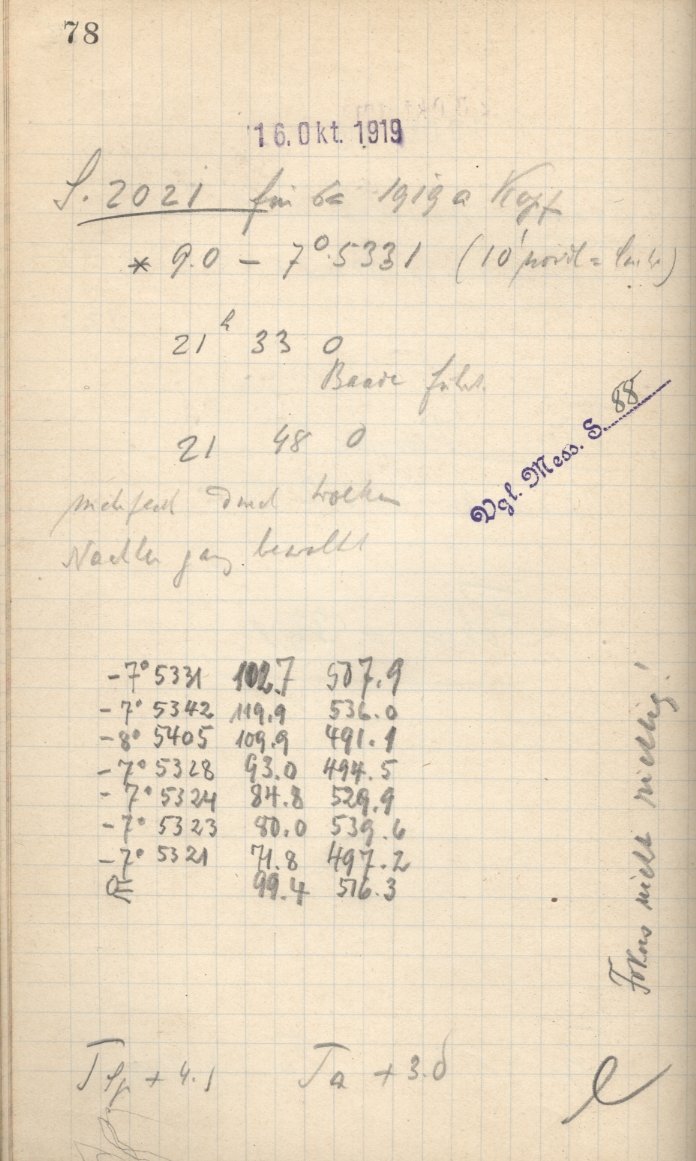 78
16. Okt. 1919
S. 2021 für 1919 a Kopf
* 9.0 - 7° 5331 (10'
21 h 33 0
Baade führt.
21 48 0
Vgl. Mess. S. 88
mehrfach durch Wolken
Nachher ganz bewölkt
-7° 5331 102.7 507.9
-7° 5342 119.9 536.0
-8° 5405 109.9 491.1
-7° 5328 93.0 494.5
-7° 5324 84.8 529.9
-7° 5323 80.0 539.6
-7° 5321 71.8 497.2
99.4 516.3
Fokus nicht richtig!
T Sp + 4.1 T a + 3.8